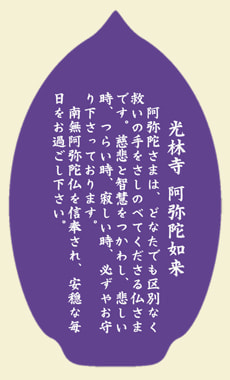 光林寺 阿弥陀如来
阿弥陀さまは、どなたでも区別なく
救いの手をさしのべてくださる仏さま
です。慈悲と智慧をつかわし、悲しい
時、つらい時、寂しい時、必ずやお守
り下さっております。
南無阿弥陀仏を信奉され、安穏な毎
日をお過ごし下さい。